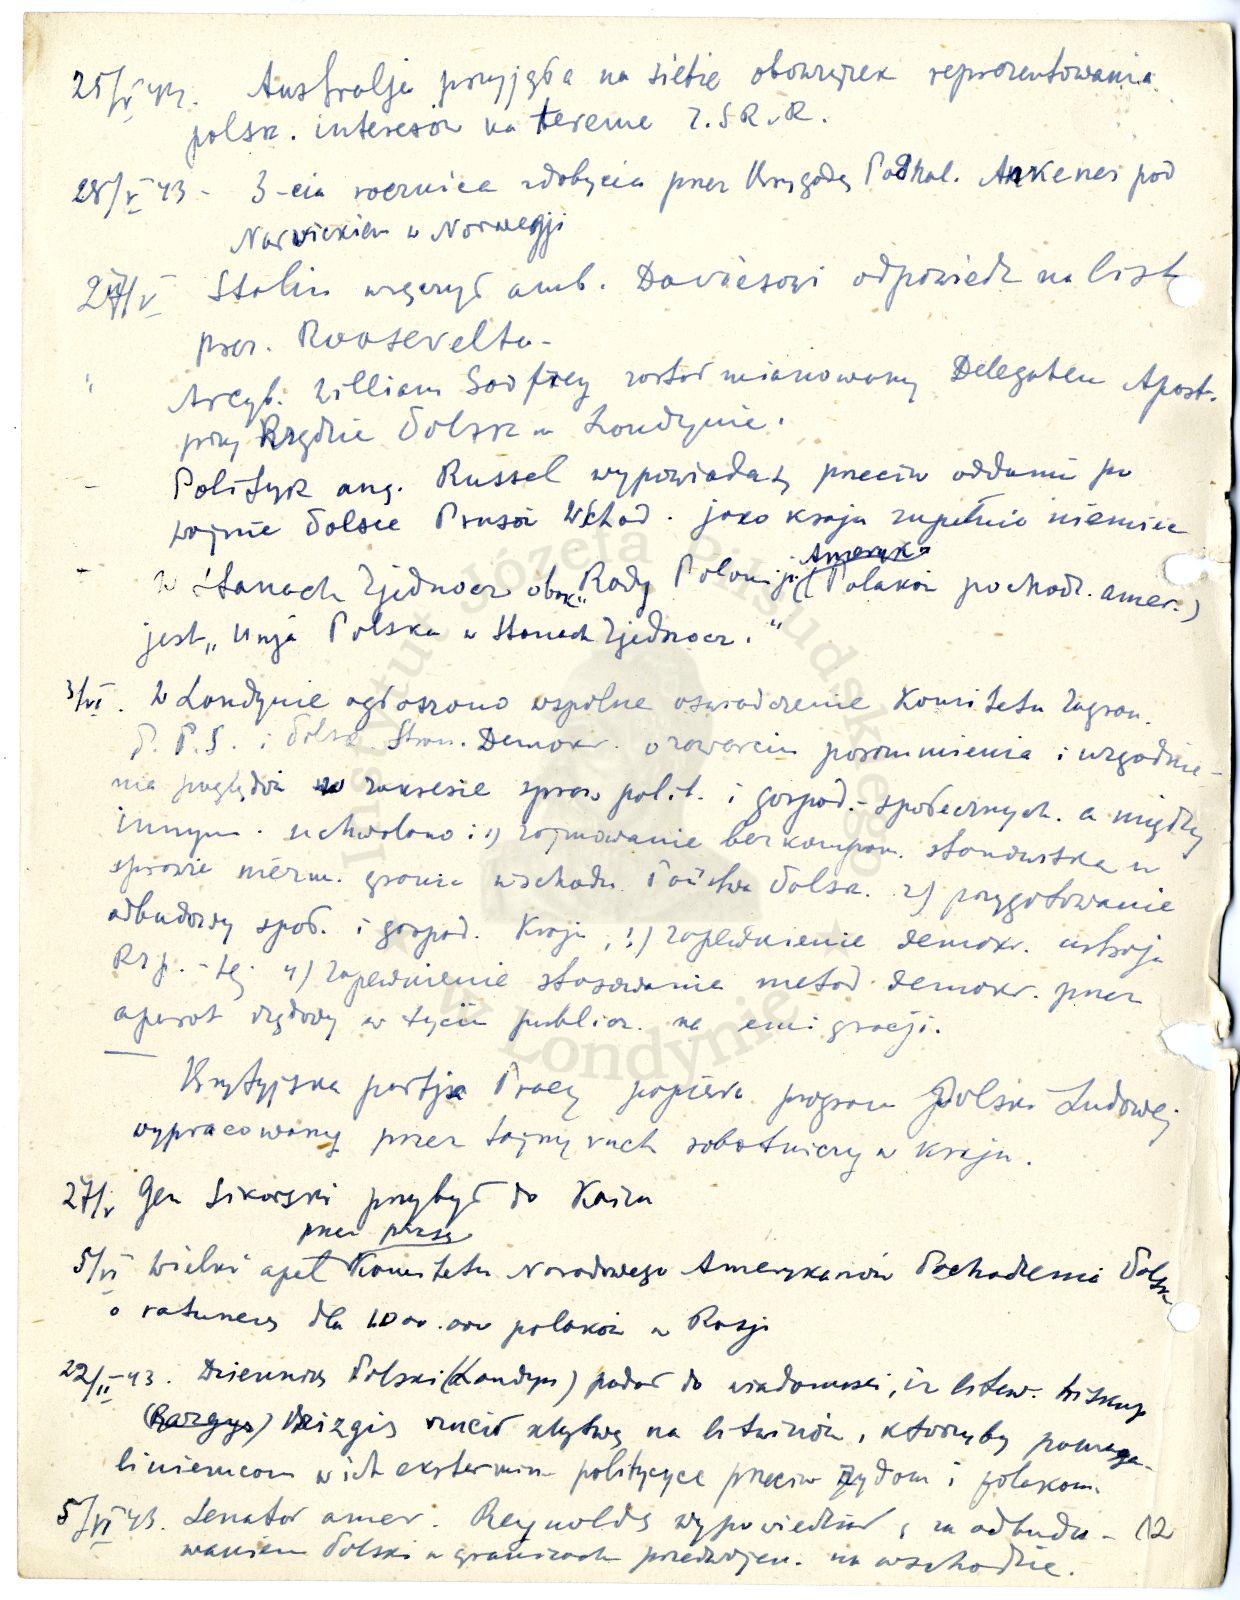 25/V 43. Australja przyjęła na siebie obowiązek reprezentowania
polsk. interesów na terenie Z.S.R.R.
28/V 43 - 3-cia rocznica zdobycia przez Brygadę Podhal. Ankenes pod
Narwickiem w Norwegji
27/V Stalin wręczył amb. Daviesowi odpowiedź na list
prez. Roosevelta -
" Arcyb. William Godfrey został mianowany Delegatem Apost.
przy Rządzie Polsk. w Londynie.
- Polityk ang. Russel wypowiada się przeciw oddaniu po
wojnie Polsce Prusów Wschod. jako kraju zupełnie niemiec
- W Stanach Zjednocz obok „Rady Polonji Ameryk" (Polaków pochodz. amer.)
jest „Unja Polska w Stanach Zjednocz."
3/VI. W Londynie ogłoszono wspólne oświadczenie Komitetu Zagran.
P.P.S. i Polsk. Stron. Demokr. o zawarciu porozumienia i uzgodnie-
nia poglądów w zakresie spraw polit. i gospod.-społecznych. a między
innym. uchwalono: 1) zajmowanie bezkomprom. stanowiska w
sprawie nienar. granic wschodn. Państwa Polsk. 2) przygotowanie
odbudowy społ. i gospod. Kraju, 3) zapewnienie demokr. ustroju
Rzp.-tej 4) zapewnienie stosowania metod demokr. przez
aparat rządowy w życiu publicz. na emigracji.
— Brytyjska partja Pracy popiera program Polski Ludowej
wypracowany przez tajny ruch robotniczy w kraju.
27/V Gen Sikorski przybył do Kairu
przez prasę
5/VI Wielki apel Komitetu Narodowego Amerykanów Pochodzenia Polsk
o ratunek dla 1000.000 polaków w Rosji
22/II 43. Dziennik Polski (Londyn) podał do wiadomości, iż litew. biskup
(Borgys) Brizgis rzucił klątwę na litwinów, którzyby pomaga-
li niemcom w ich ekstermin polityce przeciw żydom i polakom.
5/VI 43. Senator amer. Reynolds wypowiedział się za odbudo- 12
waniem Polski w granicach przedwojen. na wschodzie.